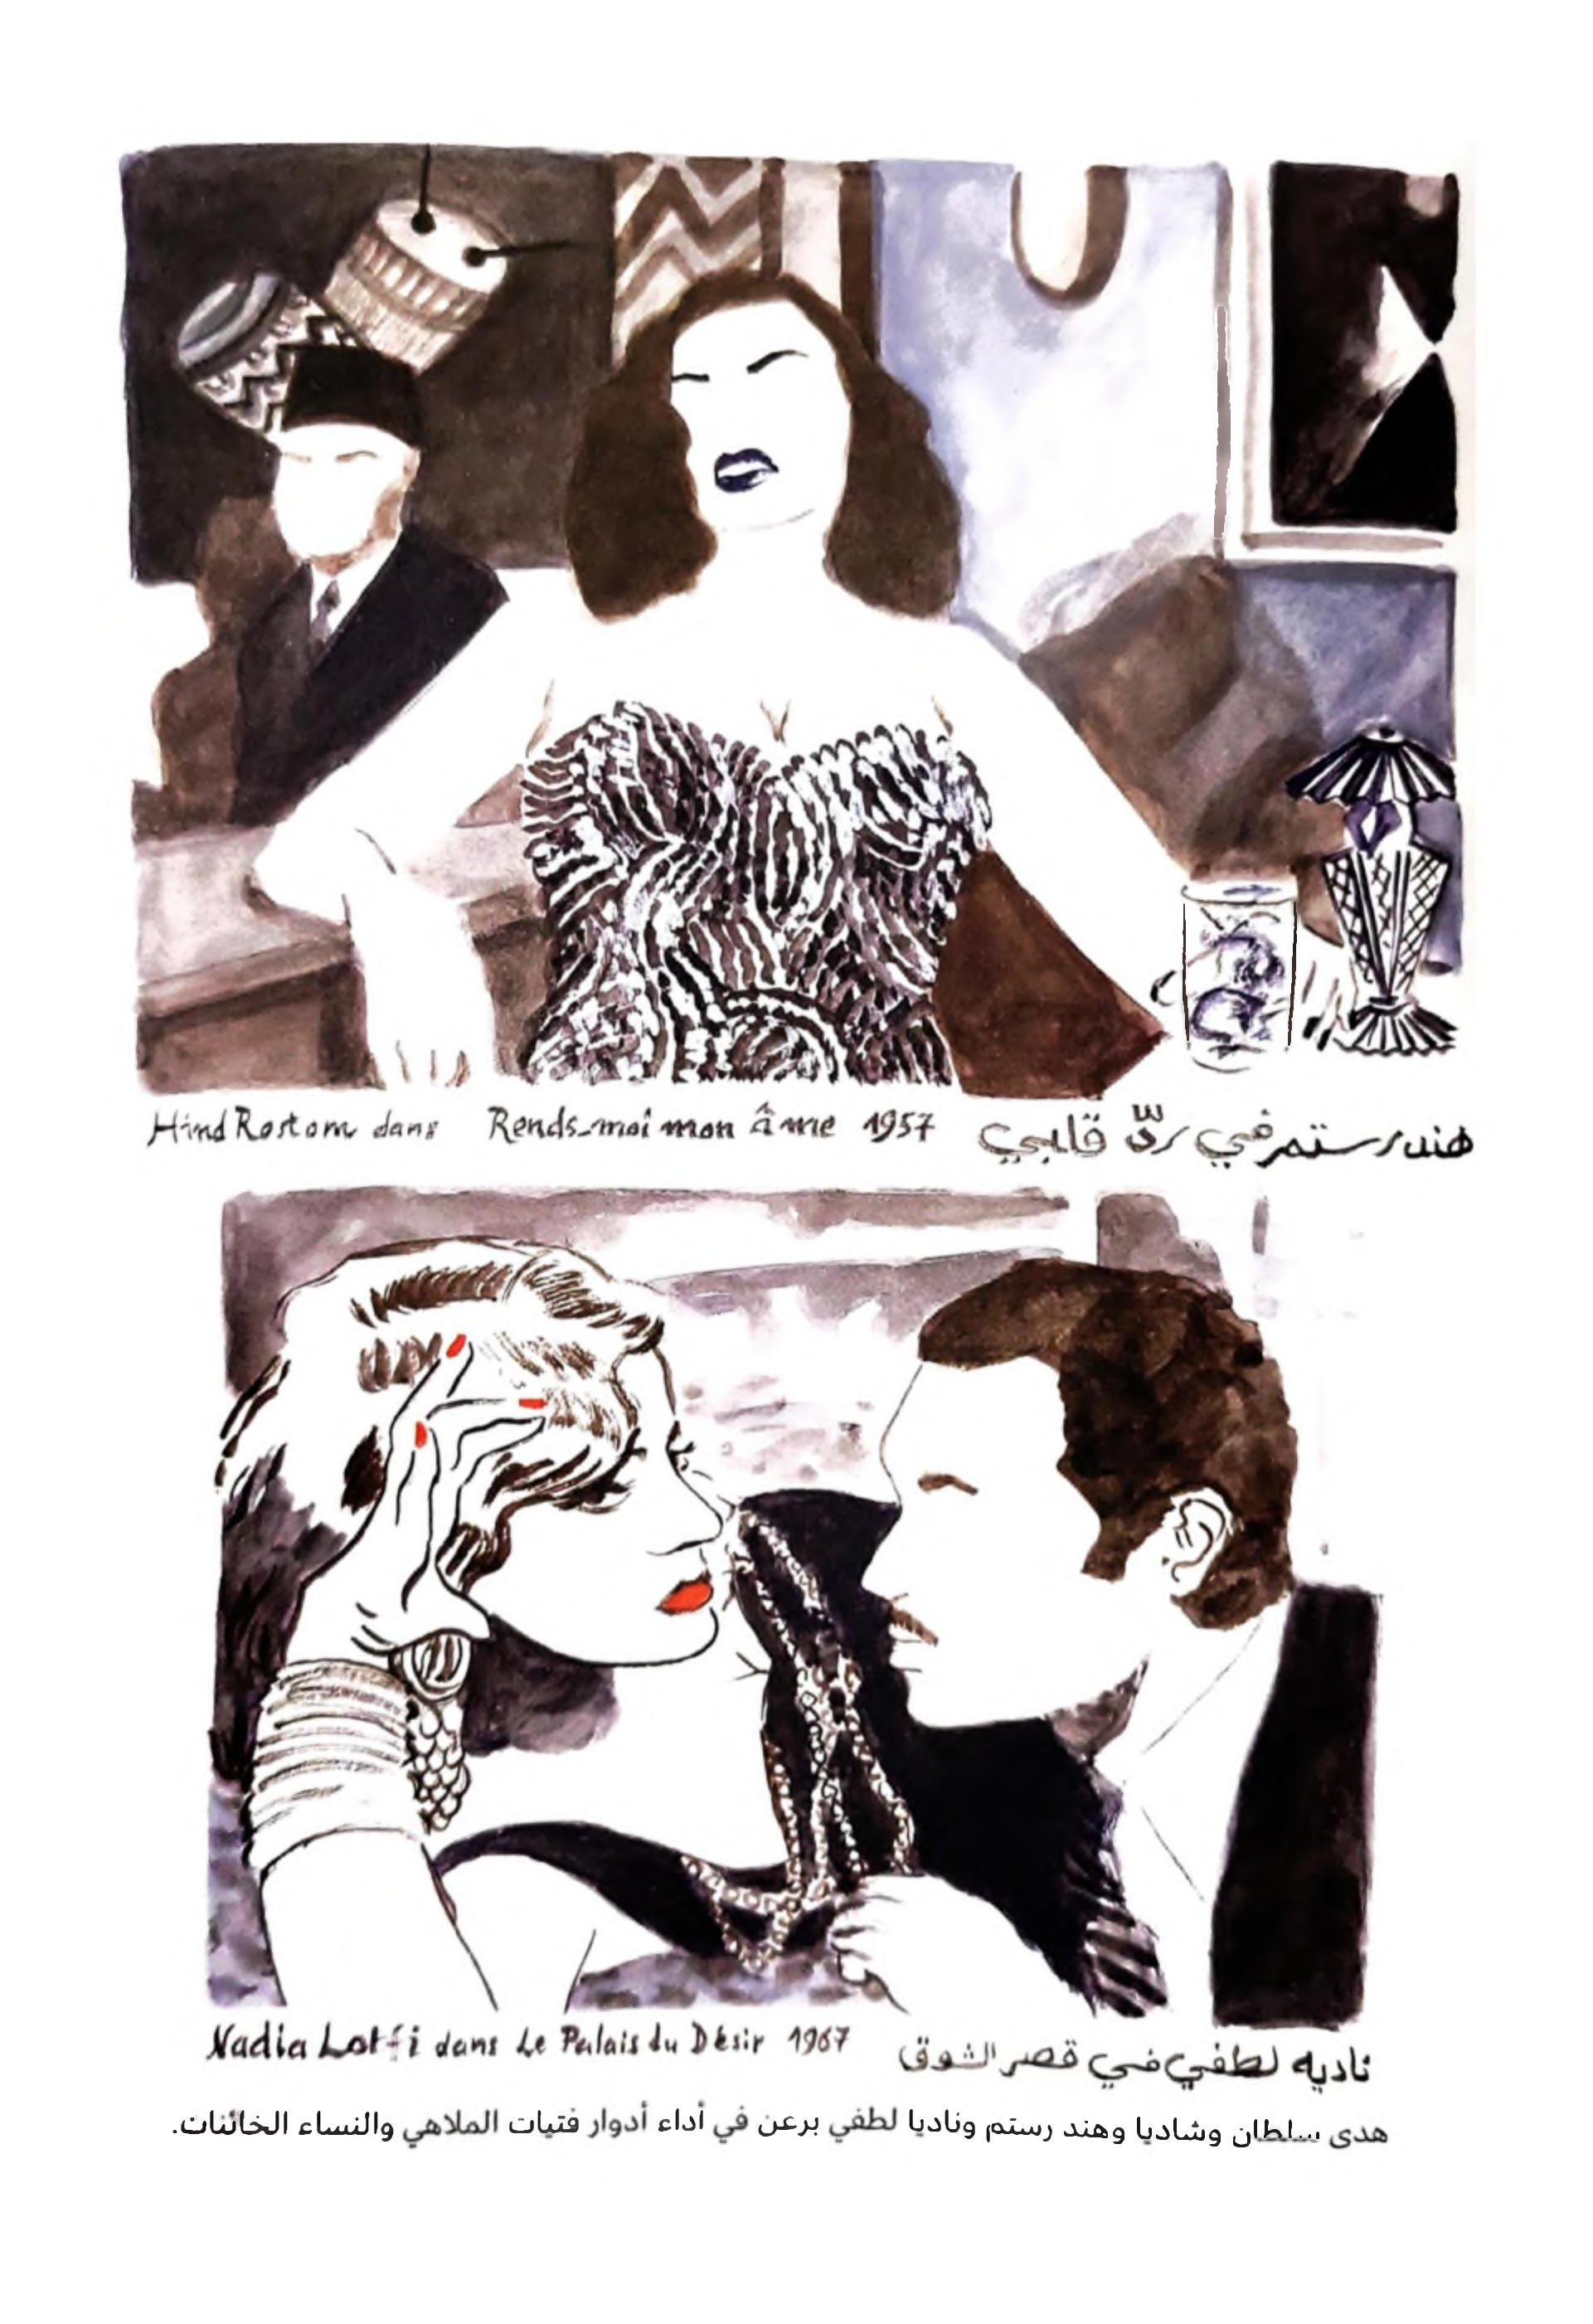 Hind Rostom dans Rends-moi mon âme 1957 هند رستم في ردّ قلبي
Nadia Lotfi dans Le Palais du Désir 1967 ناديه لطفي في قصر الشوق
هدى سلطان وشاديا وهند رستم وناديا لطفي برعن في أداء أدوار فتيات الملاهي والنساء الخائنات.